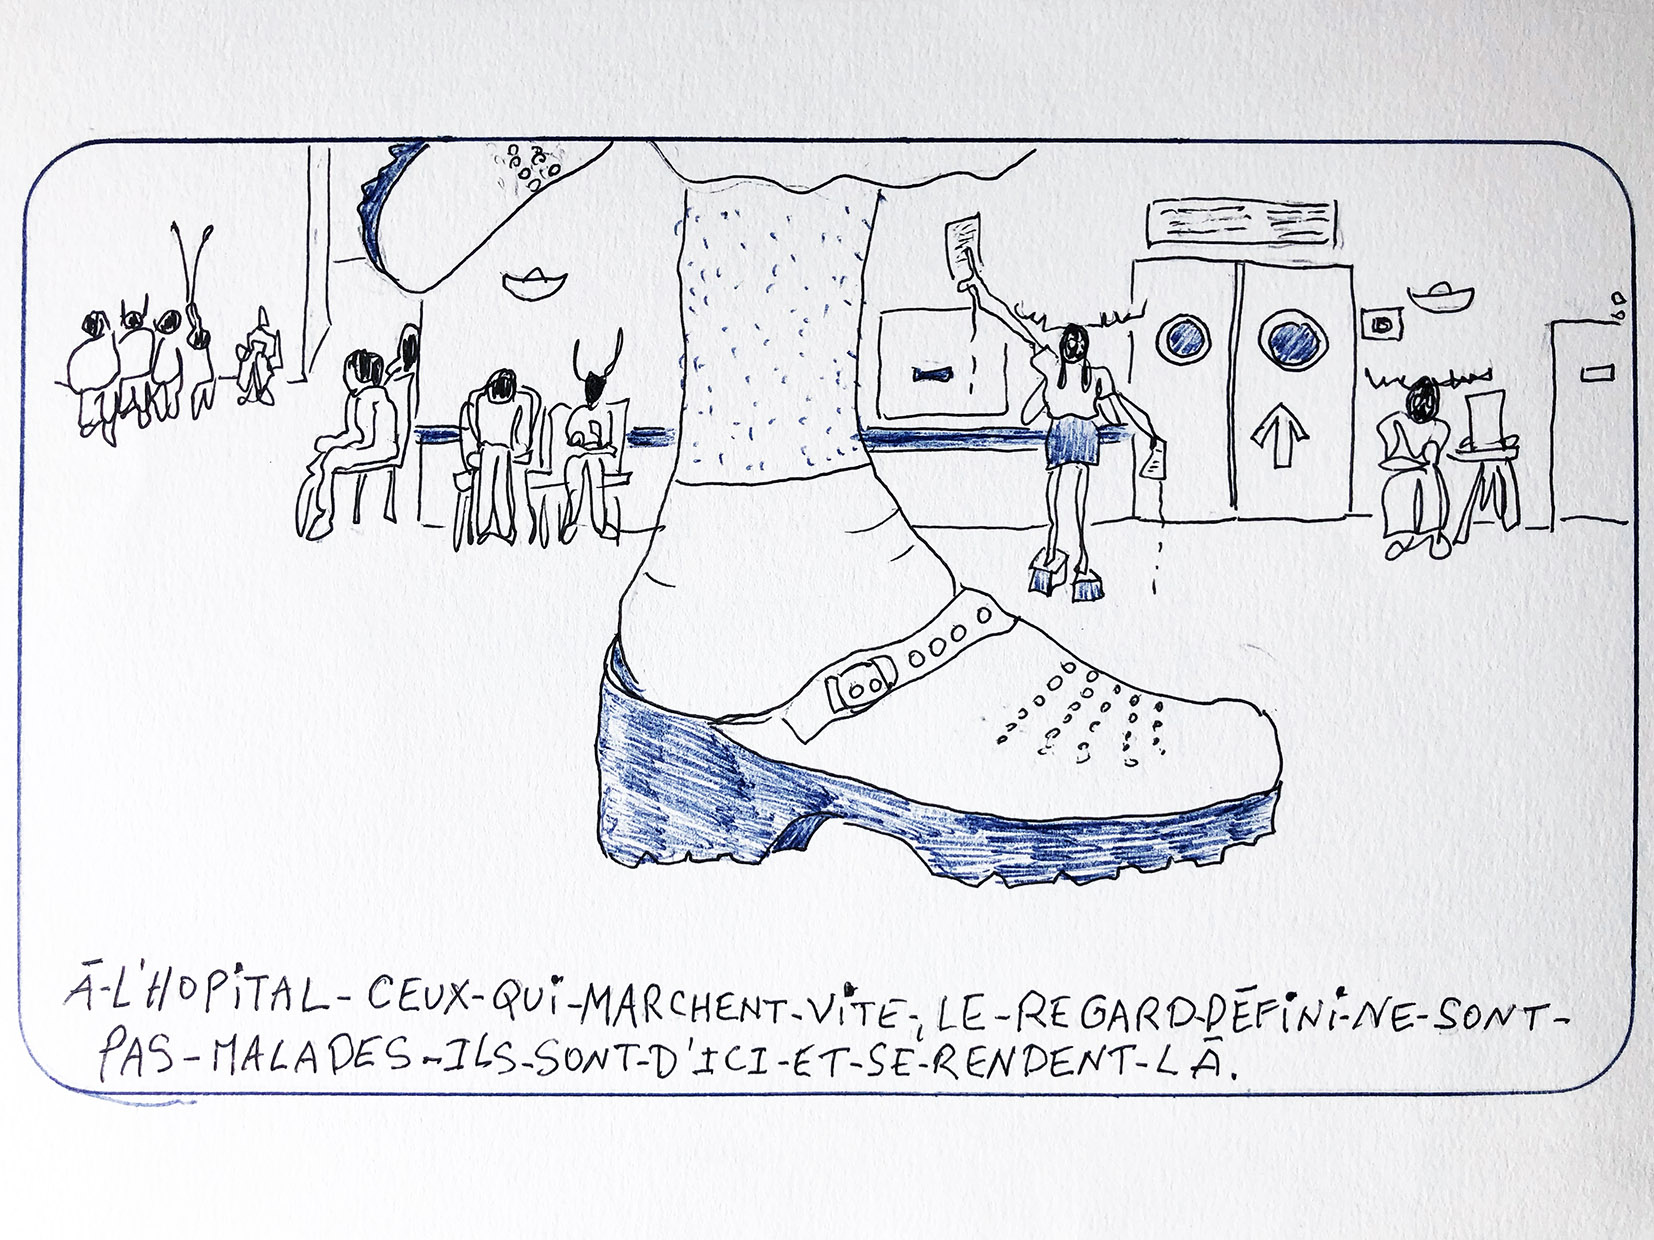 Ā-L'HOPiTAL-CEUX-QUi-MARCHENT-ViTE, LE-REGARD-DĒFiNi-NE-SONT-
PAS-MALADES-ILS-SONT-D'ICI-ET-SE-RENDENT-LĀ.